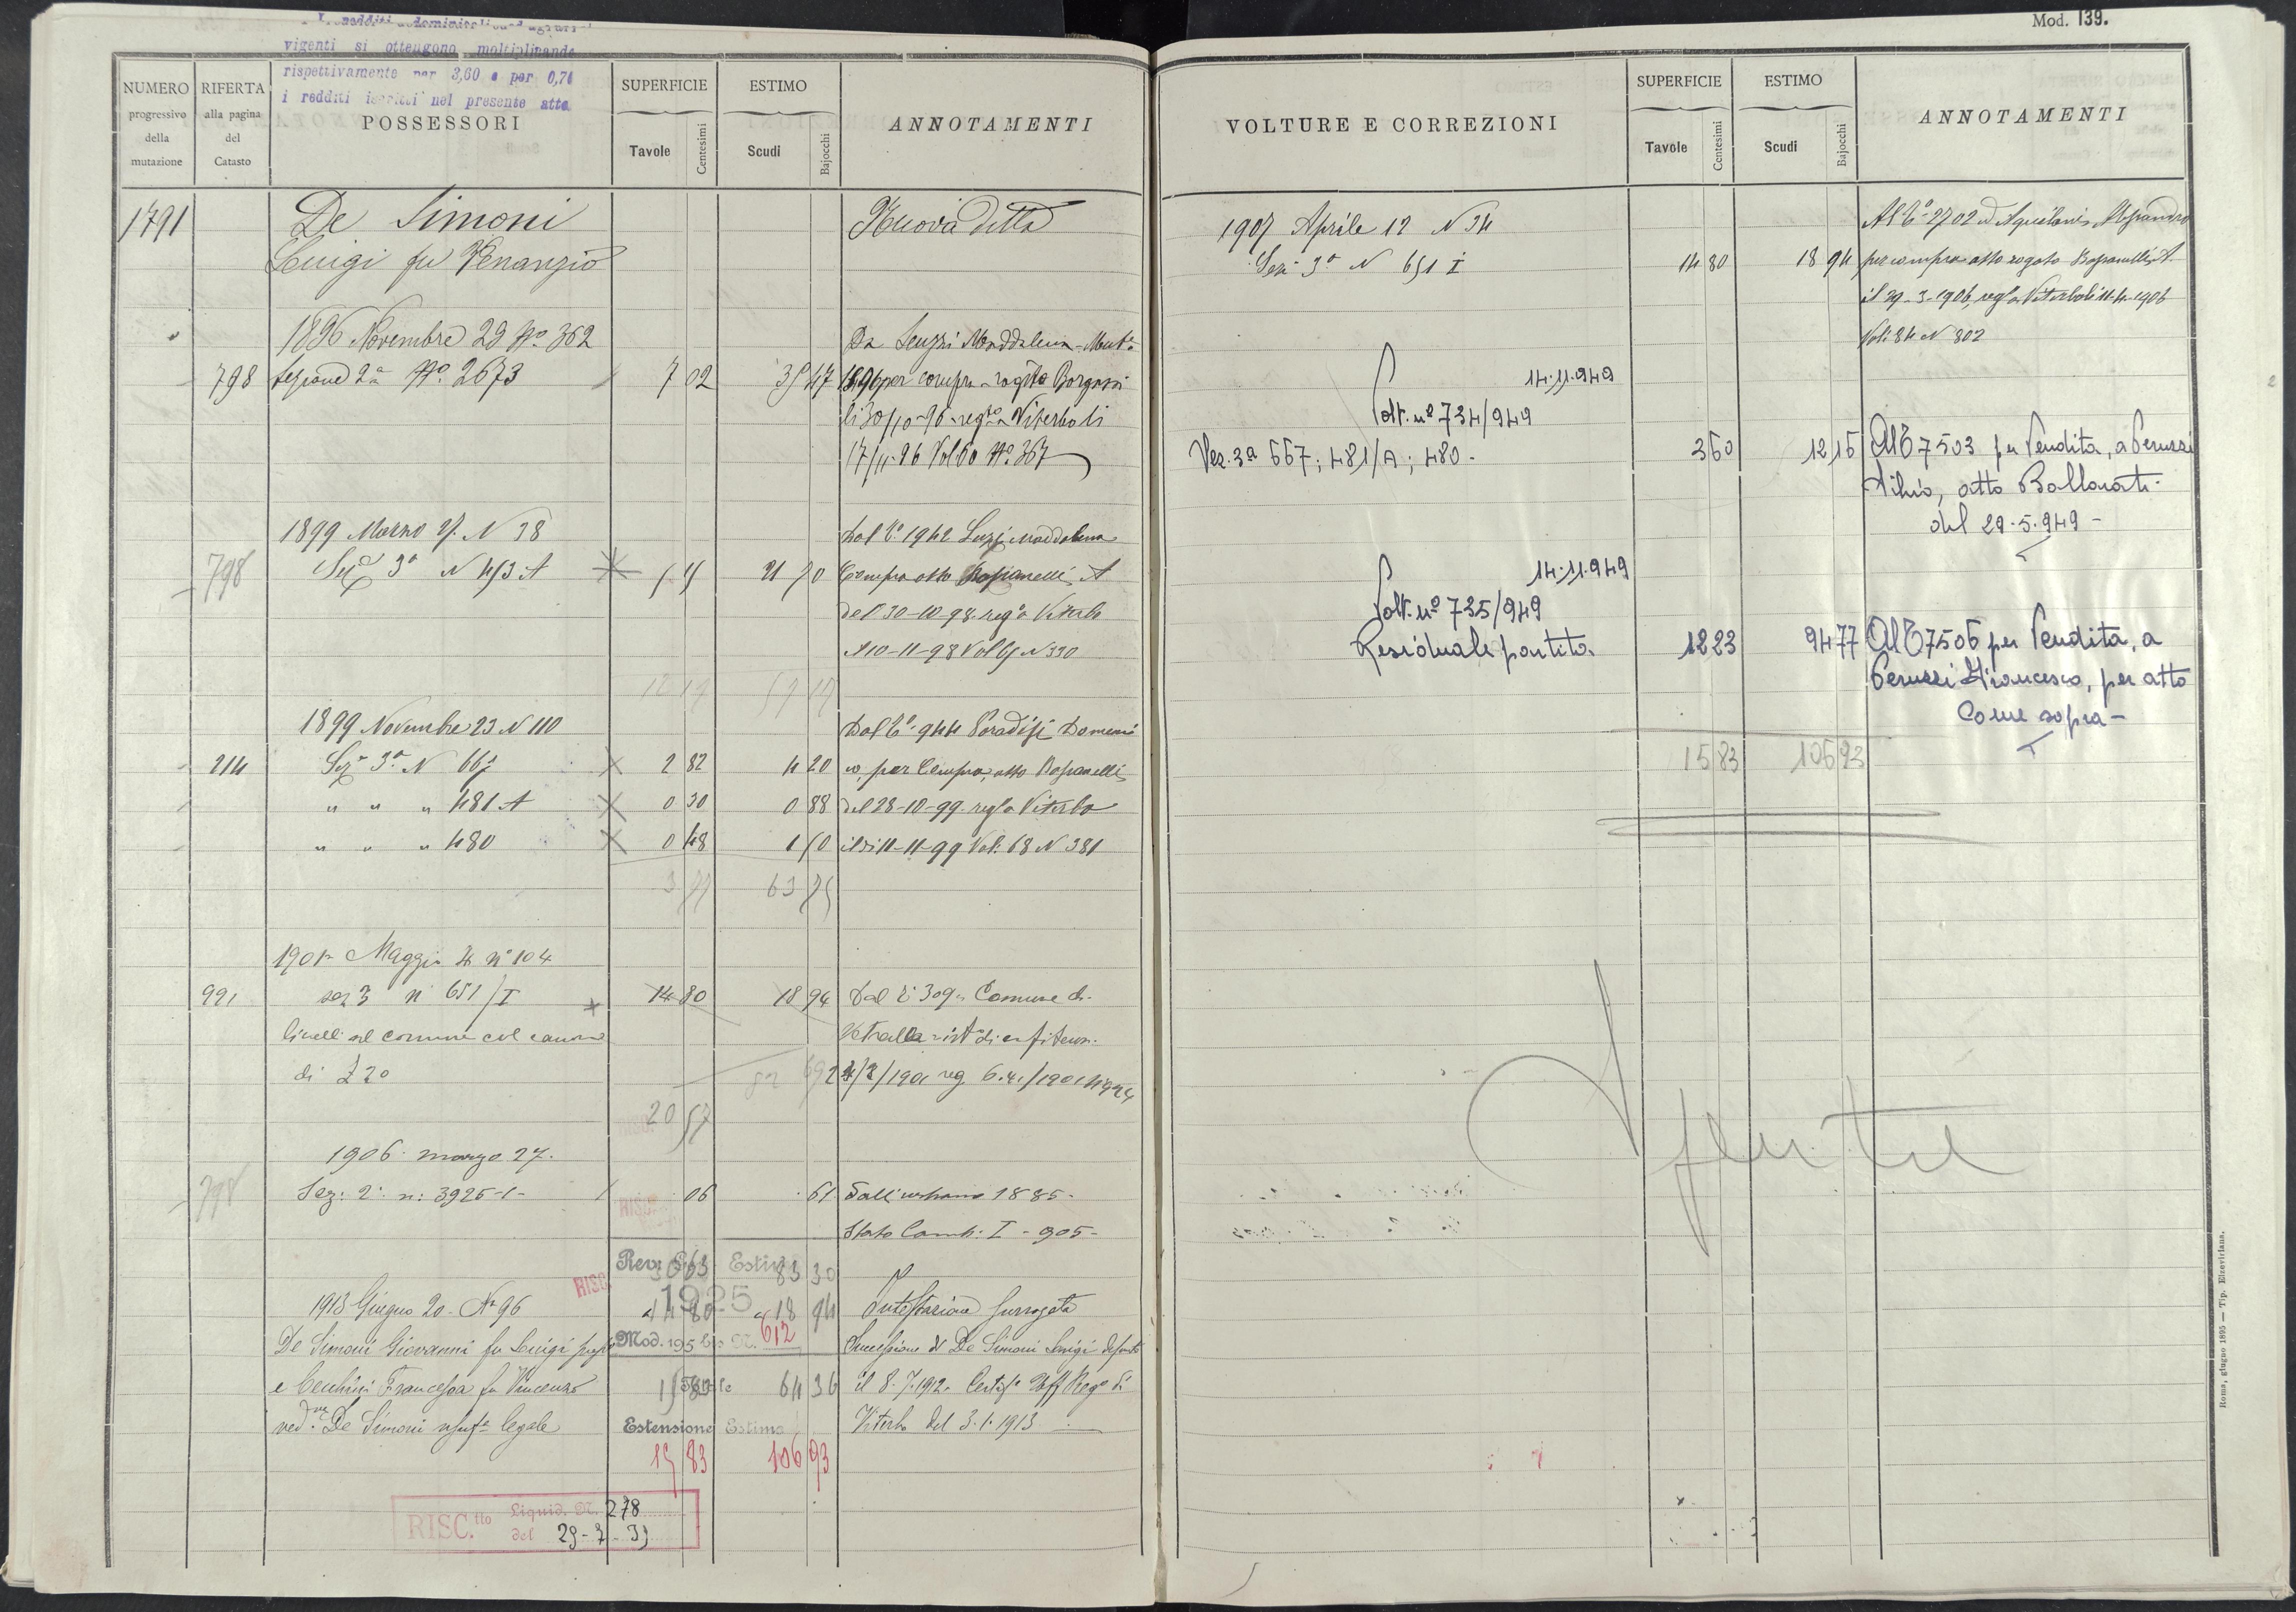 Mod. 139.
vigenti si ottengono moltiplicando
rispettivamente per 3,60 e per 0,70
i redditi iscritti nel presente atto
NUMERO progressivo della mutazione
RIFERTA alla pagina del Catasto
POSSESSORI
SUPERFICIE
Tavole Centesimi
ESTIMO
Scudi Bajocchi
ANNOTAMENTI
1791 De Simoni Nuova Ditta
Luigi fu Venanzio
1896 Novembre 29 No. 362 Da Luzzi Maddalena - Mut.
798 Sezione 2a No. 2673 7 02 35 47 1896 per compra - rogito Borgassi
li 30/10-96 - regto a Viterbo li
17/11-96 Vol 60 No. 367
1899 Marzo N 38 Dal 1942 Luzi Maddalena
798 Seze 3a N 453 A 21 70 Compra atto Bassanelli A
del 30-10-98. rego a Viterbo
il 10-11-98 Vol N 330
12 19 57 17
1899 Novembre 23 N 110 Dal To. 944 Paradisi Domeni
214 Seze 3a N 667 2 82 4 20 co, per Compra, atto Bassanelli
" " " 481 A 0 30 0 88 del 28-10-99. rego a Viterbo
" " " 480 0 48 1 50 il di 11-11-99 Vol. 68 N 381
3 77 63 75
1901 Maggio 4 n° 104
991 sez 3 n 651/I 14 80 18 94 Dal 309 Comune di
livelli al comune col canone Vetralla
di £ 20 82 69 reg.
20 57
1906 marzo 27.
798 Sez: 2a n: 3925-1- 06 61 Dall'urbano 1885.
RISC. Stato Camb: I - 905 -
Rev. Estimo 30 63 83 30
RISC. 1925
1913 Giugno 20 - No 96 14 80 18 94 Intestazione surrogata
De Simoni Giovanni fu Luigi Mod. 195 bis N. 612 Successione di De Simoni Luigi defunto
e Cecchini Francesca fu Vincenzo 15 83 64 36 il 8.7.1912. Certifo Uff Rego di
ved. De Simoni usufta legale Estensione Estimo Viterbo del 3.1.1913
15 83 106 93
RISC.tto Liquid. N. 278
del 29-7-39
VOLTURE E CORREZIONI
SUPERFICIE
Tavole Centesimi
ESTIMO
Scudi Bajocchi
ANNOTAMENTI
1907 Aprile 12 N 34 Al To. 2702 ad Aquilani
Sez 3a N 651 I 14 80 18 94 per compra atto rogato Bassanelli A.
rego a Viterbo li 11-4-1906
Vol: 84 N 802
14.11.949
Volt. n° 734/949
Vez. 3a 667; 481/A; 480 - 3 60 12 16 Al T 7503 per Vendita, a Peruzzi
Tilio, atto Ballarati
del 29.5.949 -
14.11.949
Volt. n° 735/949
Residuale partita. 12 23 94 77 Al T 7506 per Vendita, a
Peruzzi Francesco, per atto
come sopra -
15 83 106 93
Roma, giugno 1895 — Tip. Elzeviriana.